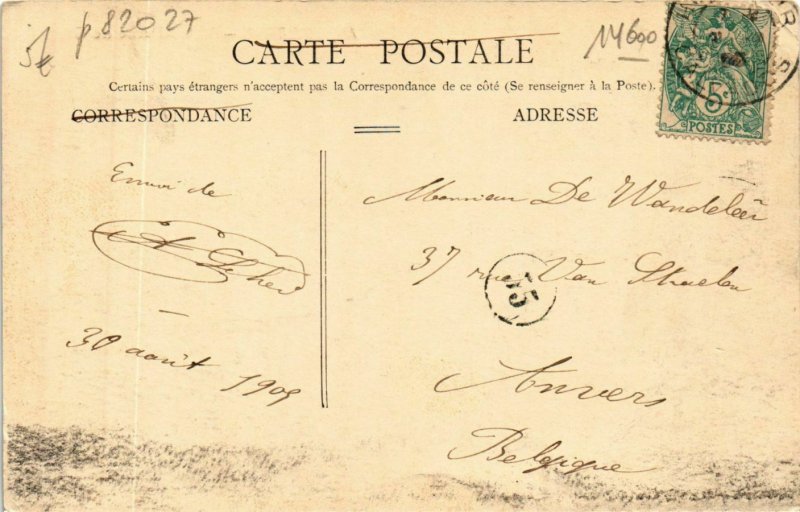 5€ p.82027
14600
CARTE POSTALE
Certains pays étrangers n'acceptent pas la Correspondance de ce côté (Se renseigner à la Poste).
CORRESPONDANCE
ADRESSE
5c
POSTES
Envoi de
30 août 1905
Monsieur De Wandeleer
37 rue Van
35
Anvers
Belgique